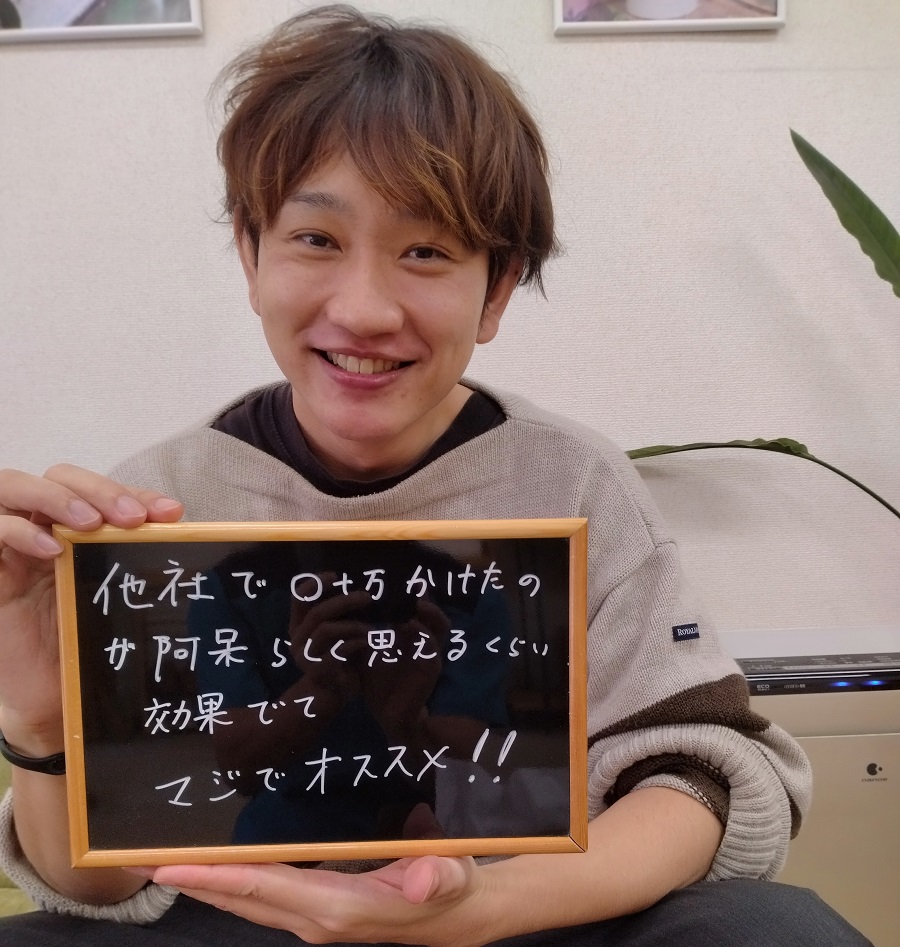 他社で〇十万かけたの
が阿呆らしく思えるくらい
効果でて
マジでオススメ!!
ECO